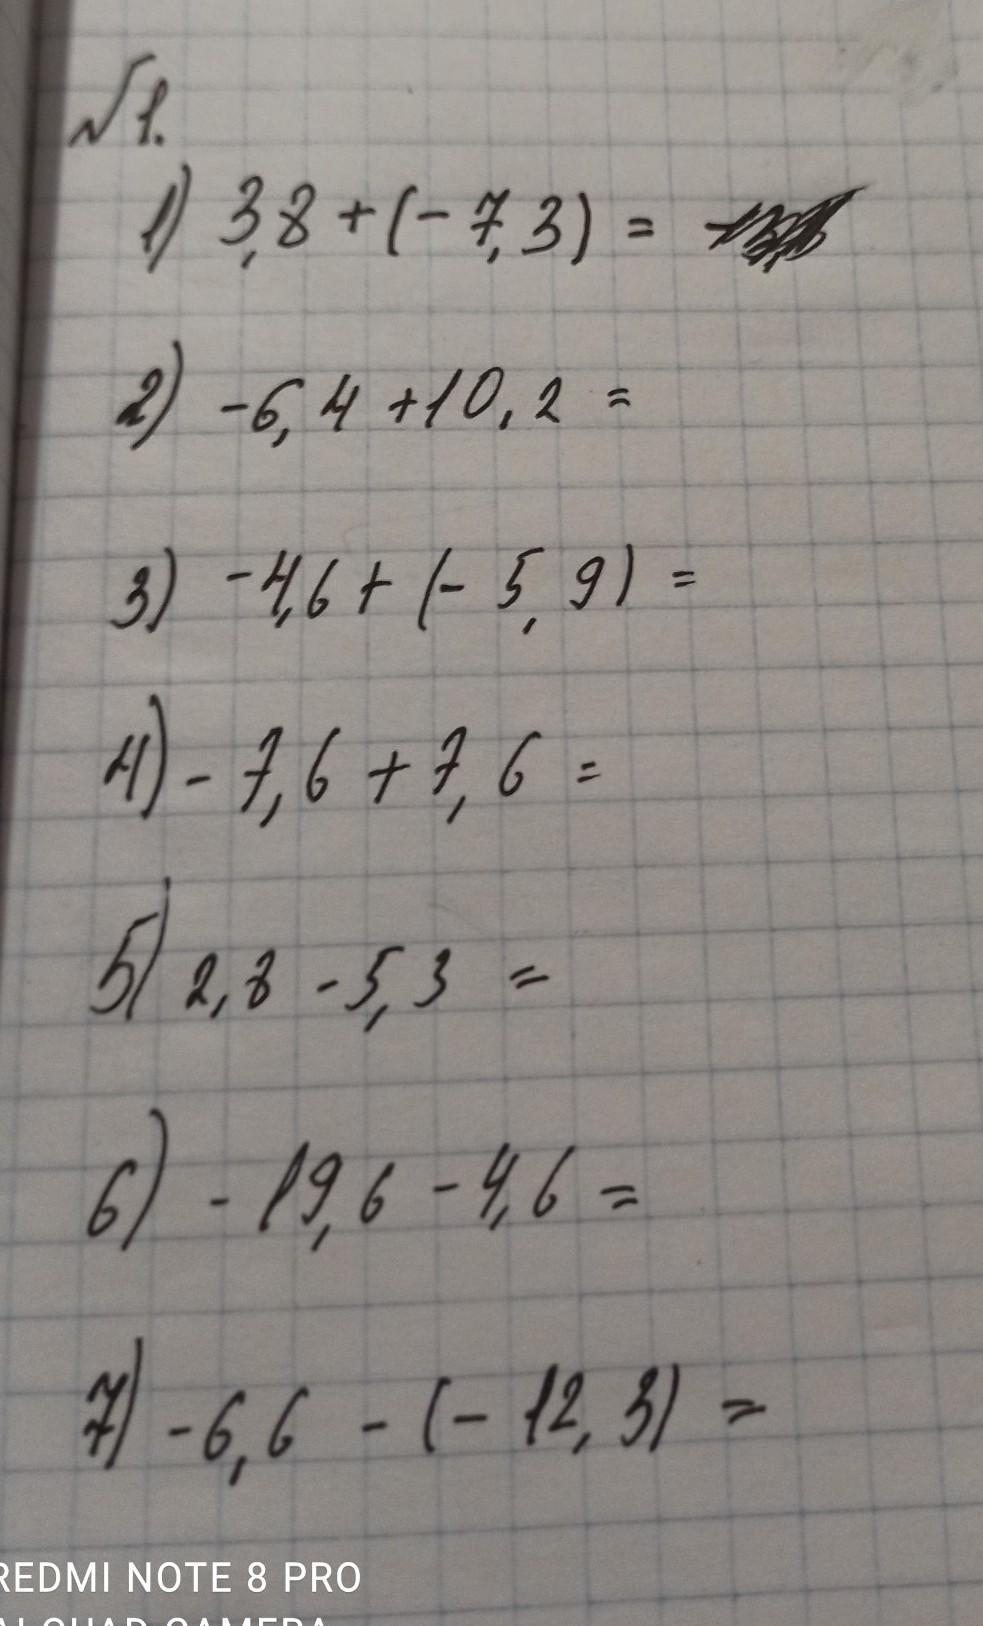 №1.
1) 3,8 + (- 7,3) =
2) -6,4 + 10,2 =
3) -4,6 + (- 5,9) =
4) - 7,6 + 7,6 =
5) 2,8 - 5,3 =
6) - 19,6 - 4,6 =
7) -6,6 - (- 12,3) =
REDMI NOTE 8 PRO
AI QUAD CAMERA